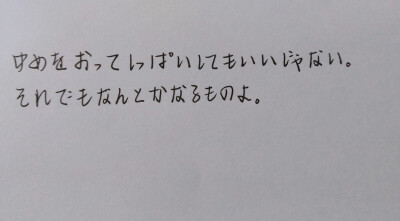 ゆめをおってしっぱいしてもいいじゃない。
それでもなんとかなるものよ。